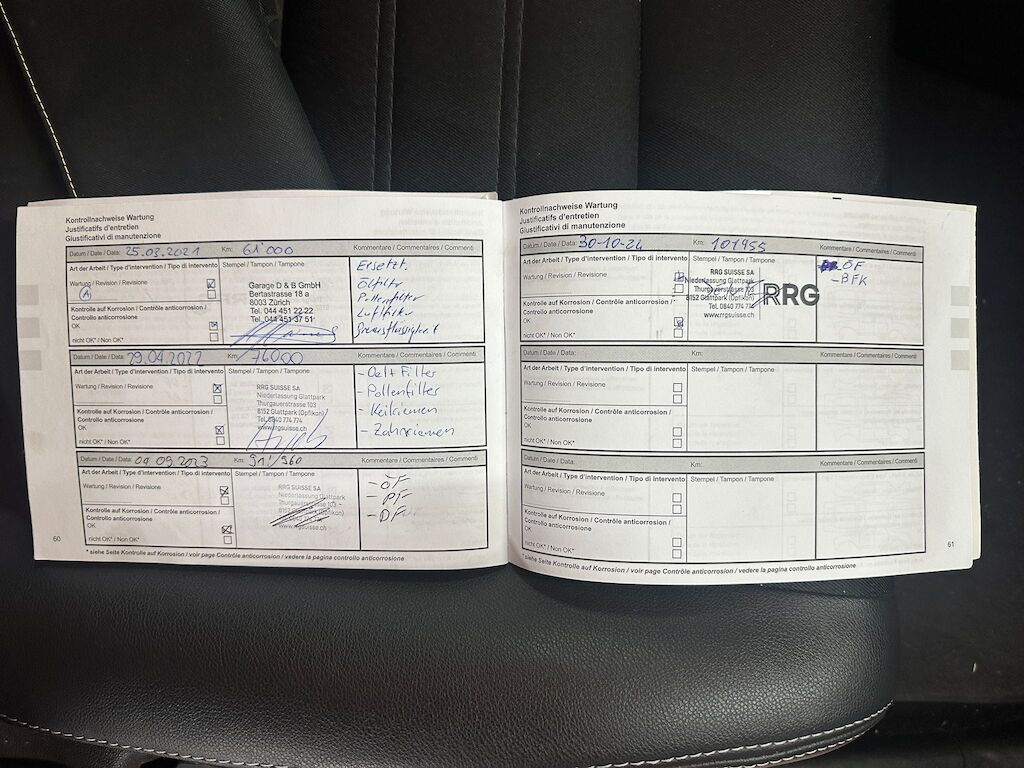 Kontrollnachweise Wartung
Justificatifs d'entretien
Giustificativi di manutenzione
Datum / Date / Data: 25.03.2021 Km: 61'000 Kommentare / Commentaires / Commenti
Art der Arbeit / Type d'intervention / Tipo di intervento Stempel / Tampon / Tampone
Wartung / Revision / Revisione
A
Kontrolle auf Korrosion / Contrôle anticorrosion /
Controllo anticorrosione
OK
nicht OK* / Non OK*
Garage D & B GmbH
Bertastrasse 18 a
8003 Zürich
Tel. 044 451 22 22
Tel. 044 451 37 51
Ersetzt.
Ölfilter
Pollenfilter
Luftfilter
Datum / Date / Data: 29.04.2022 Km: 76000 Kommentare / Commentaires / Commenti
Art der Arbeit / Type d'intervention / Tipo di intervento Stempel / Tampon / Tampone
Wartung / Revision / Revisione
Kontrolle auf Korrosion / Contrôle anticorrosion /
Controllo anticorrosione
OK
nicht OK* / Non OK*
RRG SUISSE SA
Niederlassung Glattpark
Thurgauerstrasse 103
8152 Glattpark (Opfikon)
Tel. 0840 774 774
www.rrgsuisse.ch
- Oel + Filter
- Pollenfilter
- Keilriemen
- Zahnriemen
Datum / Date / Data: 04.09.2023 Km: 91'360 Kommentare / Commentaires / Commenti
Art der Arbeit / Type d'intervention / Tipo di intervento Stempel / Tampon / Tampone
Wartung / Revision / Revisione
Kontrolle auf Korrosion / Contrôle anticorrosion /
Controllo anticorrosione
OK
nicht OK* / Non OK*
RRG SUISSE SA
Niederlassung Glattpark
Thurgauerstrasse 103
8152 Glattpark (Opfikon)
www.rrgsuisse.ch
- ÖF
- PF
- DF
60
* siehe Seite Kontrolle auf Korrosion / voir page Contrôle anticorrosion / vedere la pagina controllo anticorrosione
Kontrollnachweise Wartung
Justificatifs d'entretien
Giustificativi di manutenzione
Datum / Date / Data: 30-10-24 Km: 101955 Kommentare / Commentaires / Commenti
Art der Arbeit / Type d'intervention / Tipo di intervento Stempel / Tampon / Tampone
Wartung / Revision / Revisione
Kontrolle auf Korrosion / Contrôle anticorrosion /
Controllo anticorrosione
OK
nicht OK* / Non OK*
RRG SUISSE SA
Niederlassung Glattpark
Thurgauerstrasse 103
8152 Glattpark (Opfikon)
Tel. 0840 774 774
www.rrgsuisse.ch
RRG
- ÖF
- BFK
Datum / Date / Data: Km: Kommentare / Commentaires / Commenti
Art der Arbeit / Type d'intervention / Tipo di intervento Stempel / Tampon / Tampone
Wartung / Revision / Revisione
Kontrolle auf Korrosion / Contrôle anticorrosion /
Controllo anticorrosione
OK
nicht OK* / Non OK*
Datum / Date / Data: Km: Kommentare / Commentaires / Commenti
Art der Arbeit / Type d'intervention / Tipo di intervento Stempel / Tampon / Tampone
Wartung / Revision / Revisione
Kontrolle auf Korrosion / Contrôle anticorrosion /
Controllo anticorrosione
OK
nicht OK* / Non OK*
61
* siehe Seite Kontrolle auf Korrosion / voir page Contrôle anticorrosion / vedere la pagina controllo anticorrosione